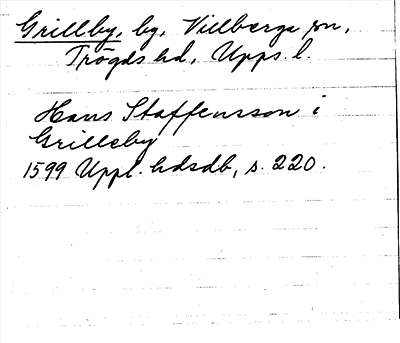 Grillby, by, Villberga sn,
Trögds hd, Upps. l.
Hans Staffensson i
Grilleby
1599 Uppl. hdsdb, s. 220.